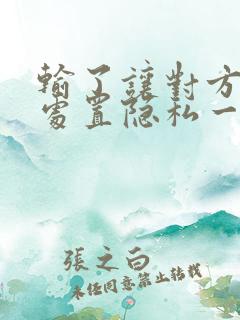 輸了讓對方
處置隐私一
張之白
未任同意禁止转载